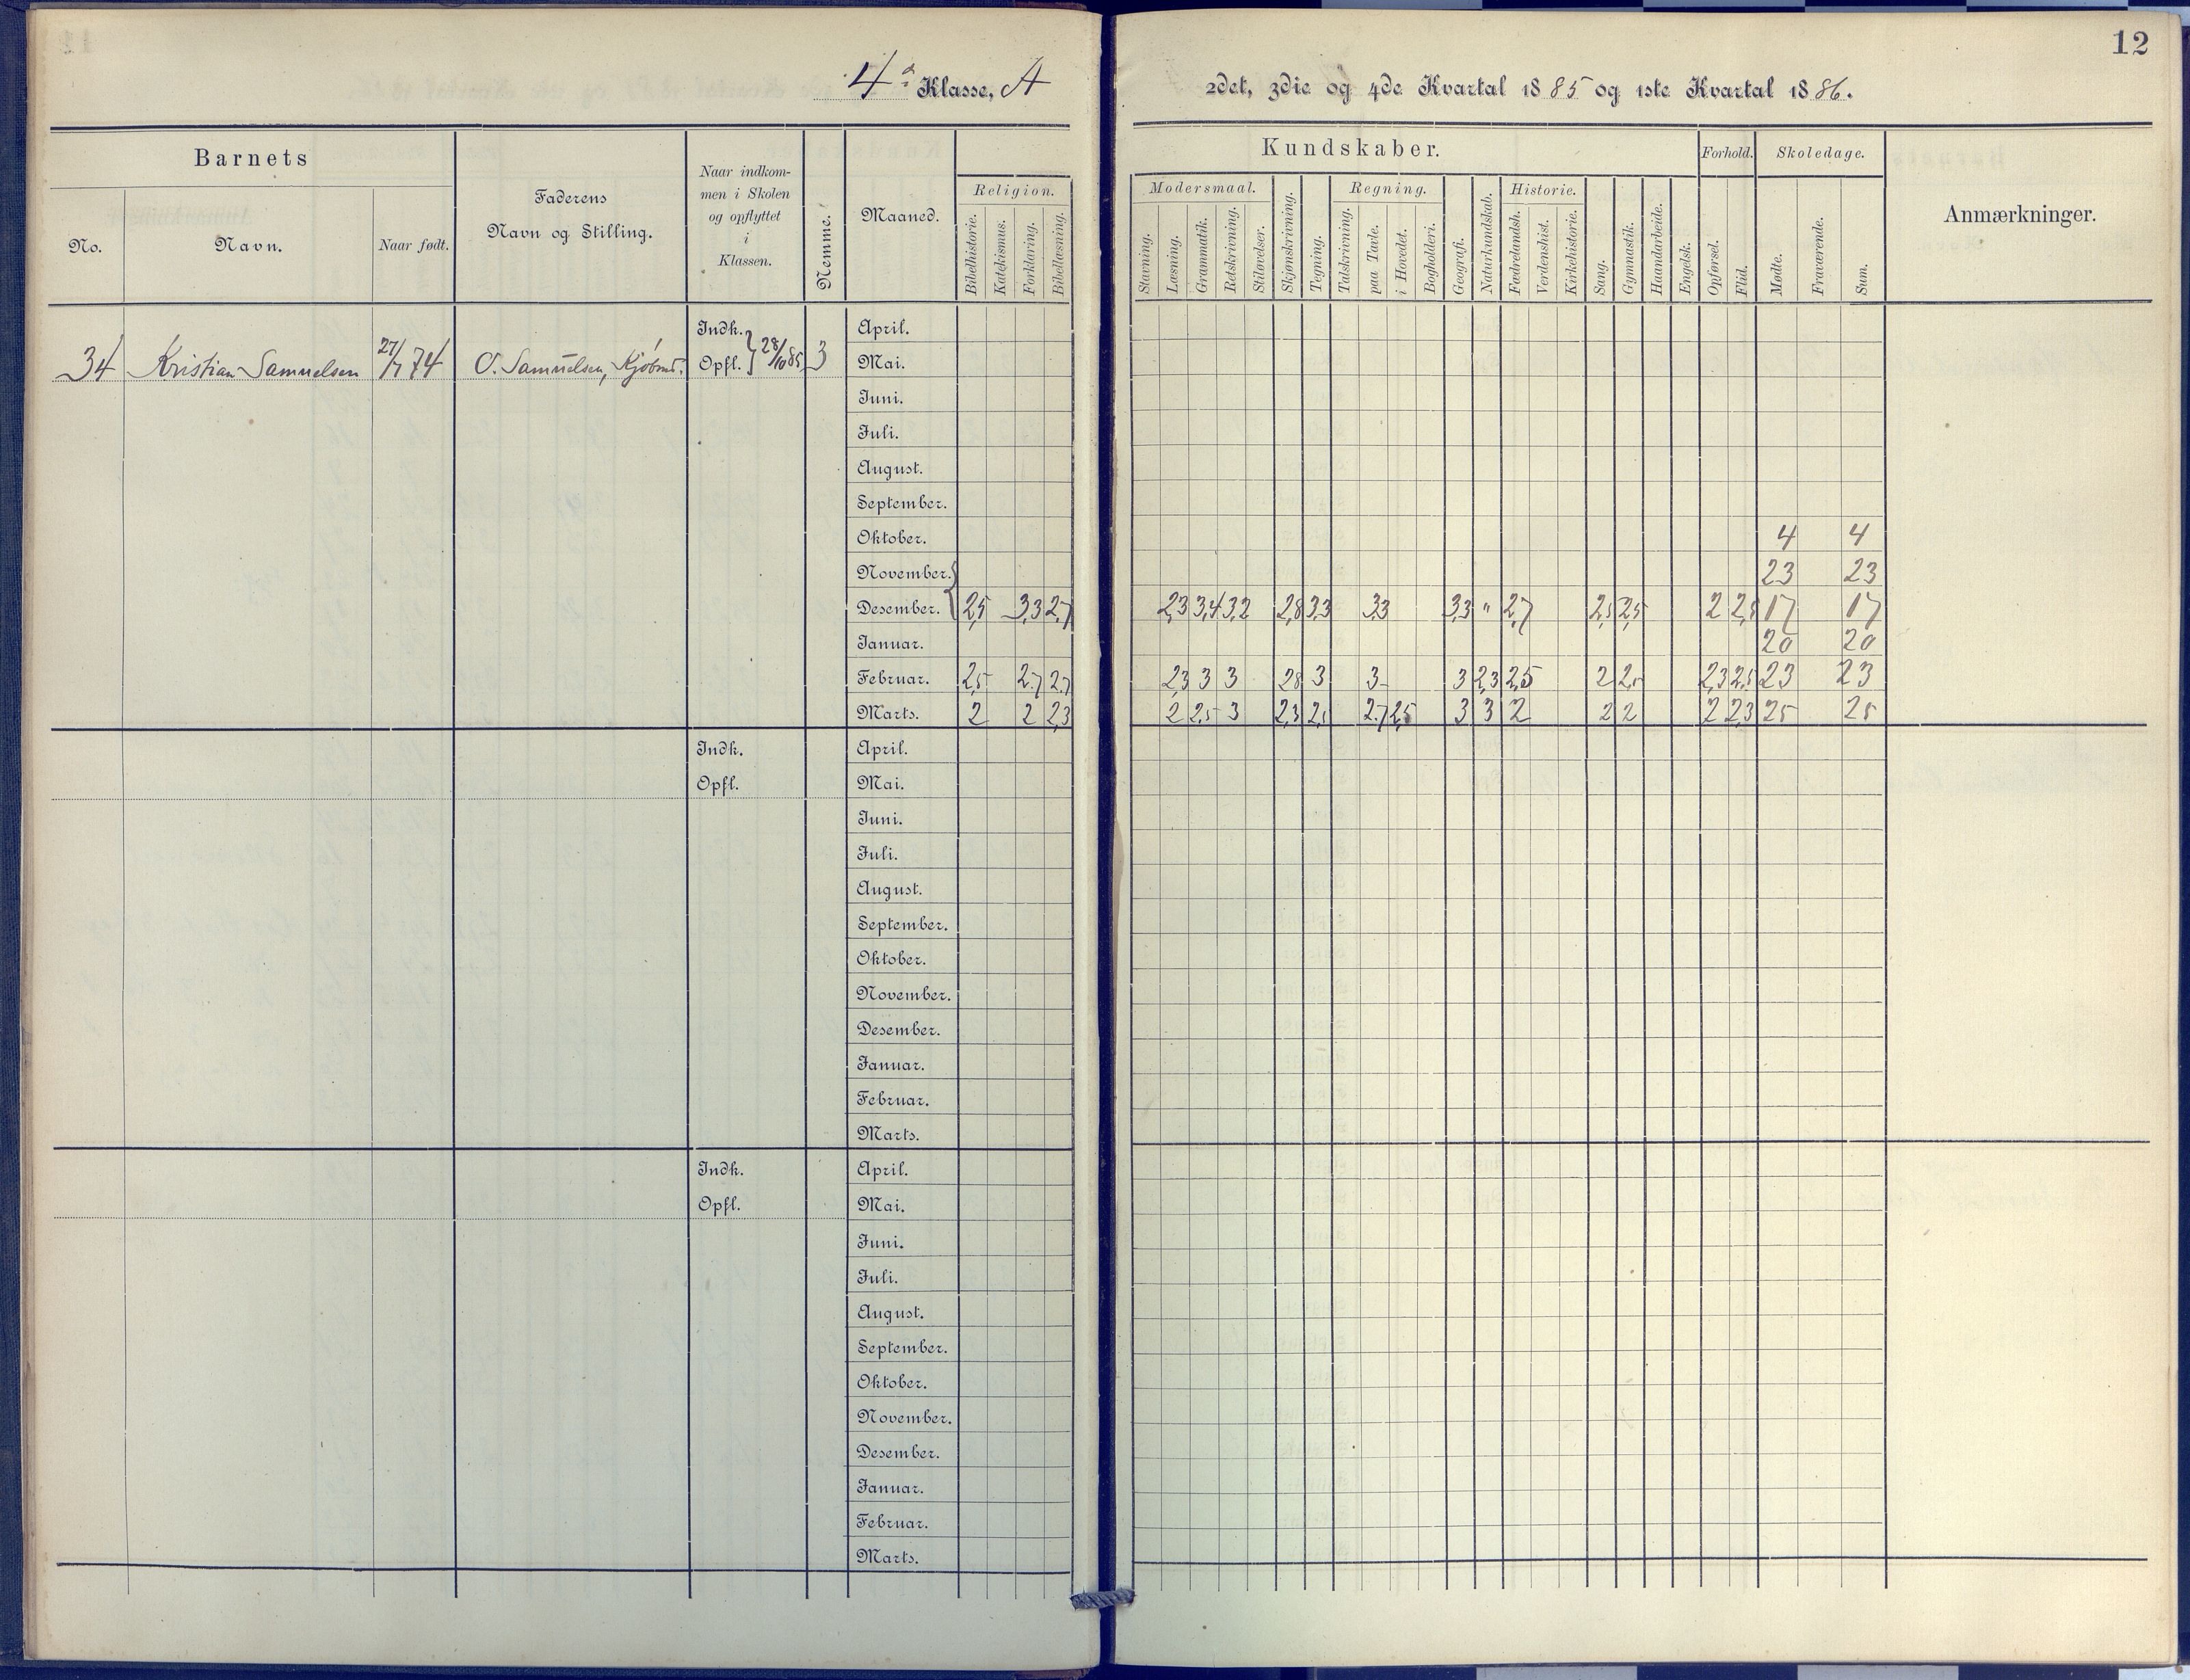 12
4de Klasse, A
2det, 3die og 4de Kvartal 1885 og 1ste Kvartal 1886.
Barnets
No.
Navn.
Naar født.
Faderens
Navn og Stilling.
Naar indkom-
men i Skolen
og opflyttet
i
Klassen.
Nemme.
Maaned.
Kundskaber.
Religion.
Bibelhistorie.
Katekismus.
Forklaring.
Bibellæsning.
Modersmaal.
Stavning.
Læsning.
Grammatik.
Retskrivning.
Stiløvelser.
Skjønskrivning.
Tegning.
Regning.
Talskrivning.
paa Tavle.
i Hovedet.
Bogholderi.
Geografi.
Naturkundskab.
Historie.
Fædrelandsh.
Verdenshist.
Kirkehistorie.
Sang.
Gymnastik.
Haandarbeide.
Engelsk.
Forhold.
Opførsel.
Flid.
Skoledage.
Mødte.
Fraværende.
Sum.
Anmærkninger.
34 Kristian Samuelsen 27/7 74 O. Samuelsen, Kjøbmd. Indk. Opfl. } 28/10 85 3
April.
Mai.
Juni.
Juli.
August.
September.
Oktober. 4 4
November. 23 23
Desember. 2,5 3,3 2,7 2,3 3,4 3,2 2,8 3,3 3,3 3,3 " 2,7 2,5 2,5 2 2,5 17 17
Januar. 20 20
Februar. 2,5 2,7 2,7 2,3 3 3 2,8 3 3 3 2,3 2,5 2 2,5 2,3 2,5 23 23
Marts. 2 2 2,3 2 2,5 3 2,3 2,5 2,7 2,5 3 3 2 2 2 2 2,3 25 25
Indk.
Opfl.
April.
Mai.
Juni.
Juli.
August.
September.
Oktober.
November.
Desember.
Januar.
Februar.
Marts.
Indk.
Opfl.
April.
Mai.
Juni.
Juli.
August.
September.
Oktober.
November.
Desember.
Januar.
Februar.
Marts.